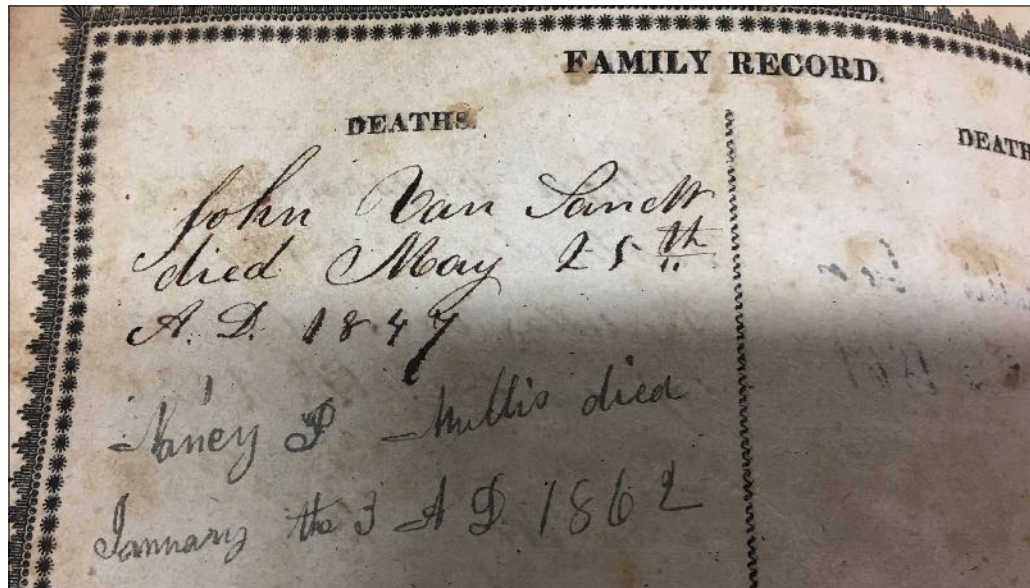 FAMILY RECORD.
DEATHS.
DEATH
John Van Sandt
died May 25th
A. D. 1847
Nancy P Mullis died
January the 3 A D 1862